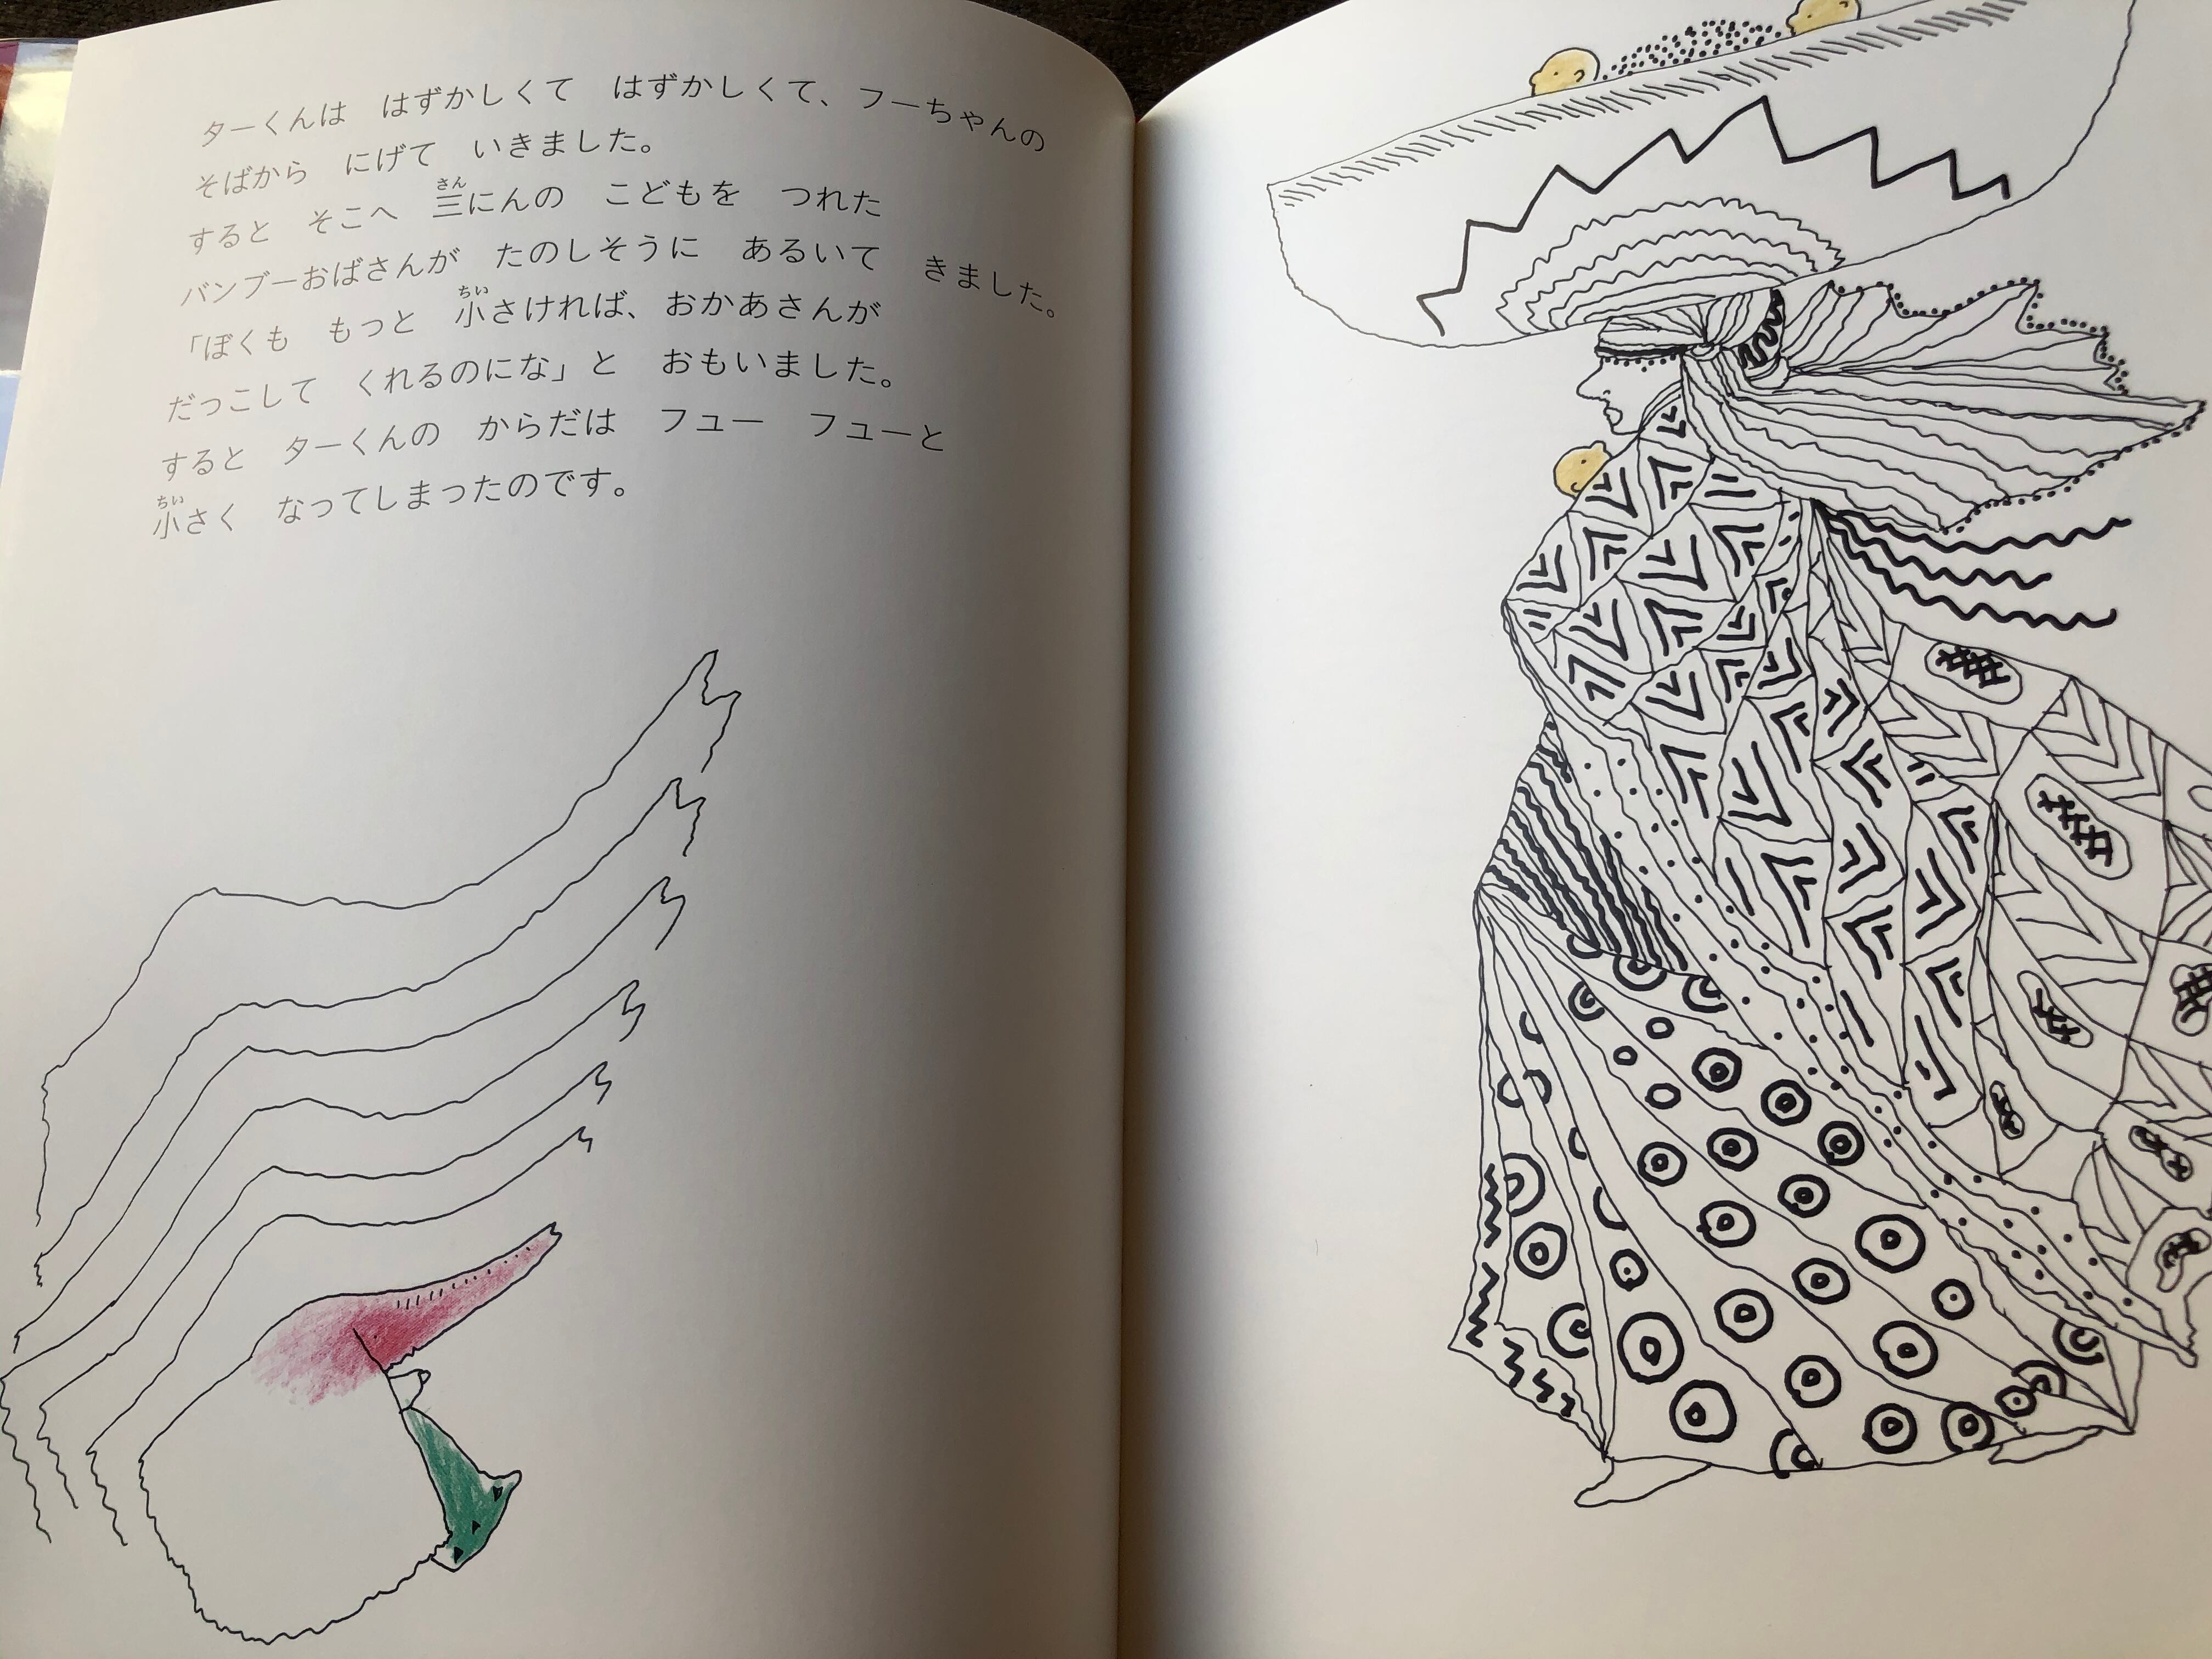 ターくんは　はずかしくて　はずかしくて、フーちゃんの
そばから　にげて　いきました。
すると　そこへ　三にんの　こどもを　つれた
バンブーおばさんが　たのしそうに　あるいて　きました。
「ぼくも　もっと　小さければ、おかあさんが
だっこして　くれるのにな」と　おもいました。
すると　ターくんの　からだは　フュー　フューと
小さく　なってしまったのです。